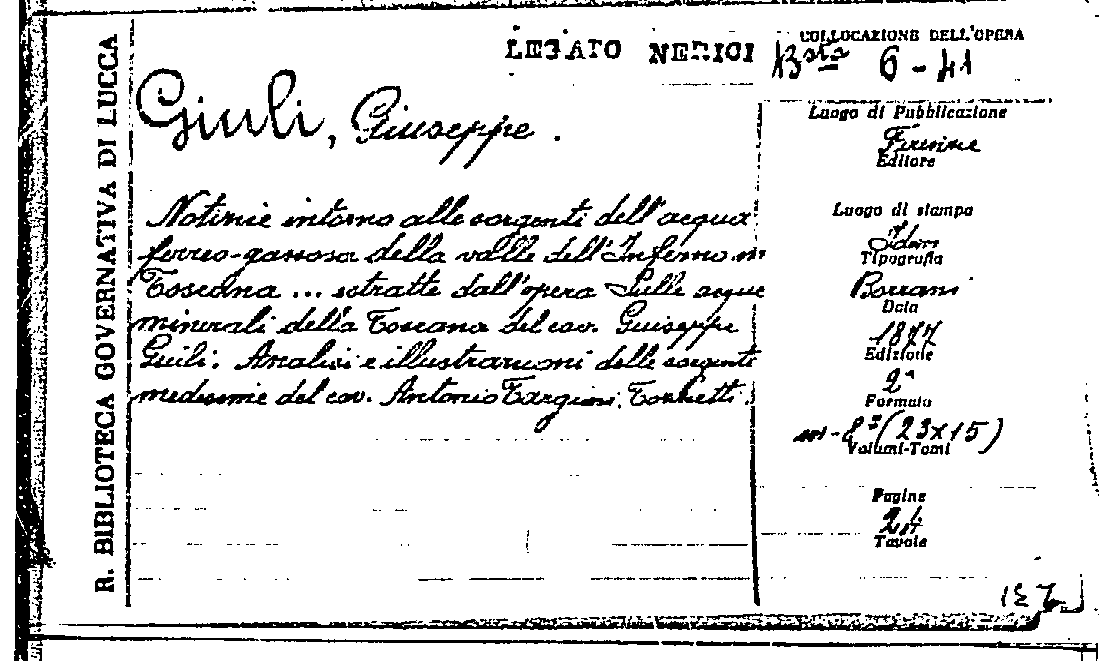 R. BIBLIOTECA GOVERNATIVA DI LUCCA
LEGATO NERICI
COLLOCAZIONE DELL'OPERA
Bsta 6-41
Giuli, Giuseppe.
Notizie intorno alle sorgenti dell'acqua
ferreo-gassosa della valle dell'Inferno in
Toscana ... estratte dall'opera Sulle acque
minerali della Toscana del cav. Giuseppe
Giuli. Analisi e illustrazioni delle sorgenti
medesime del cav. Antonio Targioni Tozzetti.
Luogo di Pubblicazione
Firenze
Editore
Luogo di stampa
Idem
Tipografia
Borrani
Data
1877
Edizione
2ª
Formato
in-8º (23x15)
Volumi-Tomi
Pagine
24
Tavole